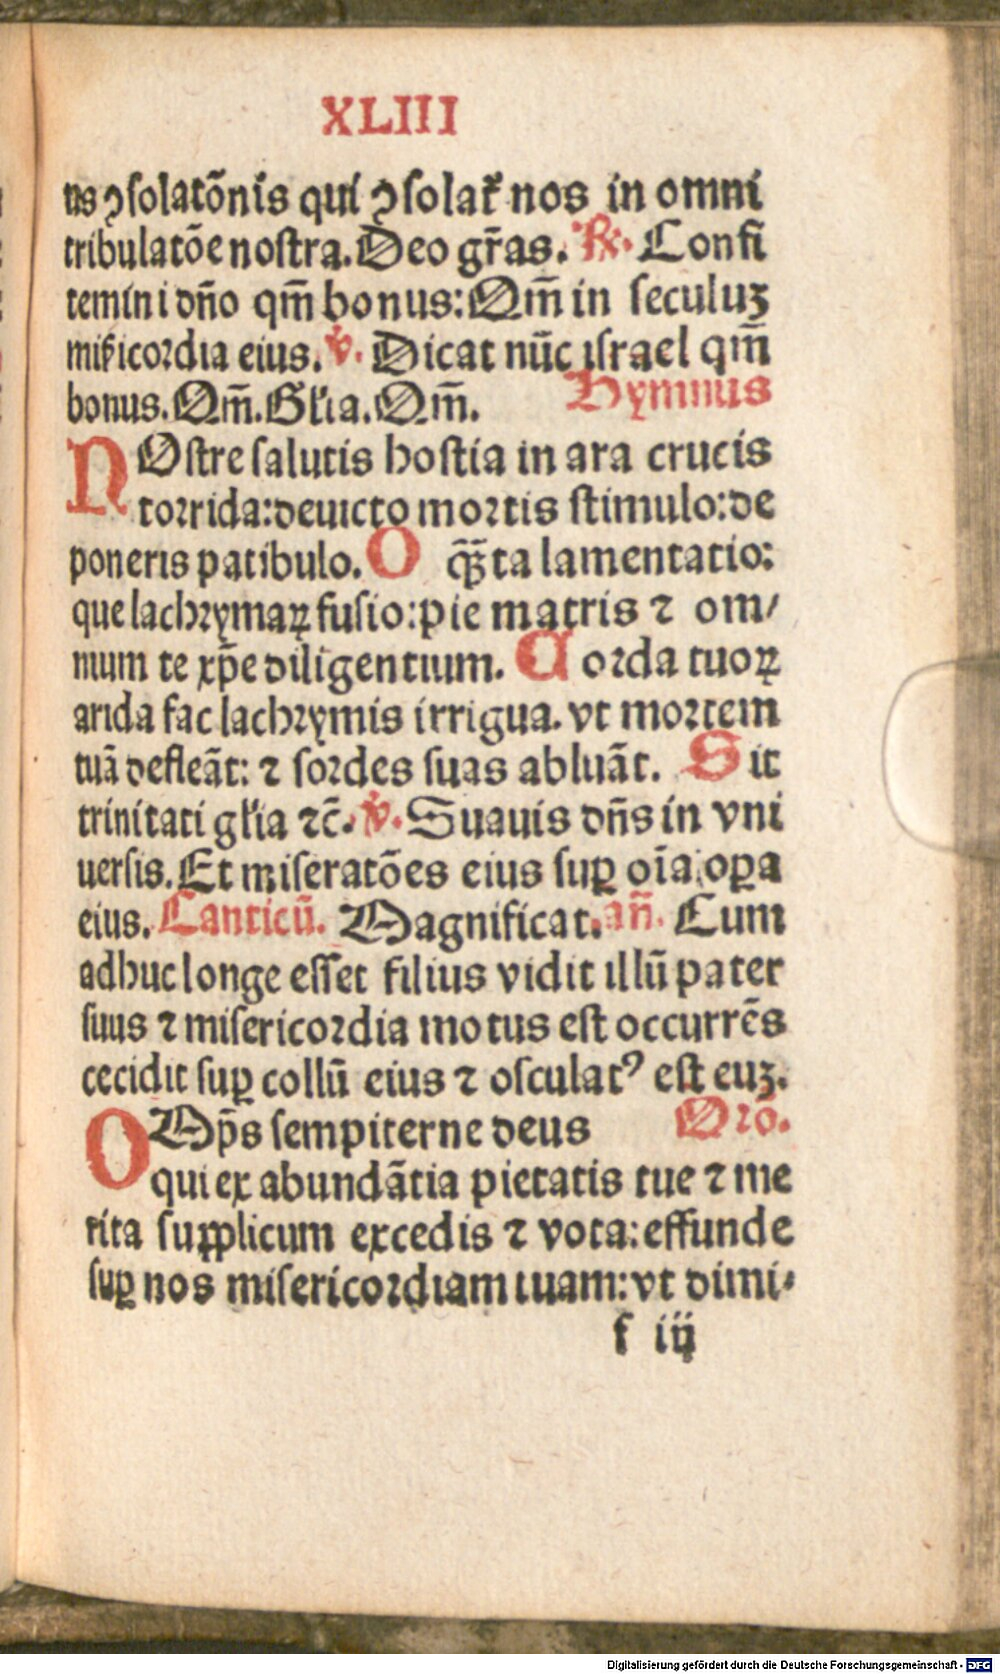 XLIII
us ꝯsolatōnis qui ꝯsolat᷑ nos in omni
tribulatōe nostra. Deo gr̄as. ℟. Confi
temini dn̄o qm̄ bonus: Qm̄ in seculuꝫ
mīsicordia eius. ℣. Dicat nūc israel qm̄
bonus. Qm̄. Gl̄ia. Qm̄. Hymnus
NOstre salutis hostia in ara crucis
torrida: deuicto mortis stimulo: de
poneris patibulo. O qꝫ̄ta lamentatio:
que lachrymaꝝ fusio: pie matris ⁊ om/
nium te xp̄e diligentium. Corda tuoꝝ
arida fac lachrymis irrigua. vt mortem
tuā defleāt: ⁊ sordes suas abluāt. Sit
trinitati gl̄ia ⁊c̄. ℣. Suauis dn̄s in vni
uersis. Et miseratōes eius suꝑ oīa oꝑa
eius. Canticū. Magnificat. an̄. Cum
adhuc longe esset filius vidit illū pater
suus ⁊ misericordia motus est occurrēs
cecidit suꝑ collū eius ⁊ osculatꝰ est euꝫ.
OMp̄s sempiterne deus Oro.
qui ex abundātia pietatis tue ⁊ me
rita supplicum excedis ⁊ vota: effunde
suꝑ nos misericordiam tuam: vt dimi/
f iij
Digitalisierung gefördert durch die Deutsche Forschungsgemeinschaft - DFG